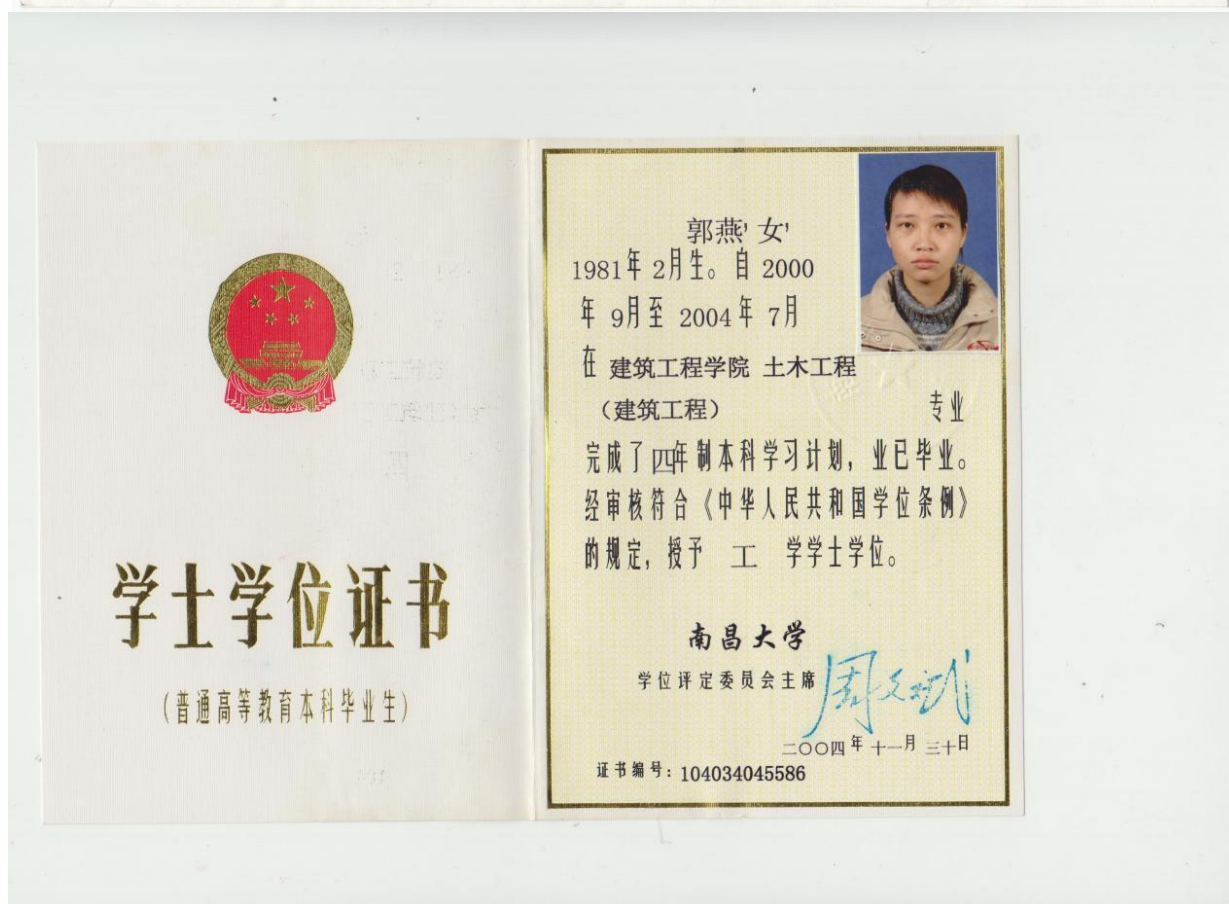 学士学位证书
(普通高等教育本科毕业生)
郭燕,女,
1981年 2月生。自 2000
年 9月至 2004年 7月
在 建筑工程学院 土木工程
(建筑工程) 专业
完成了四年制本科学习计划,业已毕业。
经审核符合《中华人民共和国学位条例》
的规定,授予 工 学学士学位。
南昌大学
学位评定委员会主席 周文斌
二〇〇四年 十一月 三十日
证书编号:104034045586